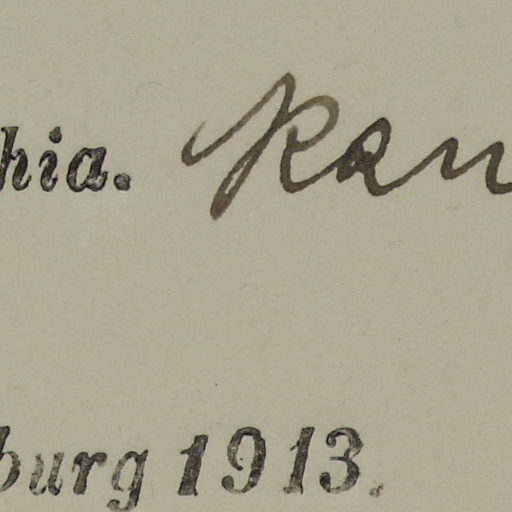 hia. Ran
burg 1913.